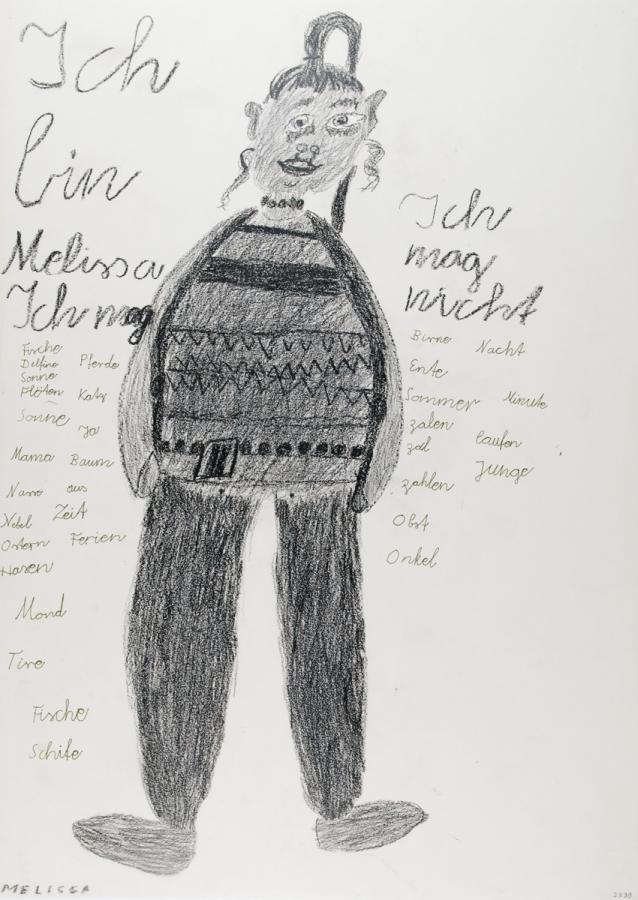 Ich
bin
Melissa
Ich mag
Fische
Delfine Pferde
Sonne
Flöten Katz
Sonne
Ja
Mama Baum
Nano aus
Nebel Zeit
Ostern Ferien
Hasen
Mond
Tire
Fische
Schife
Ich
mag
nicht
Birne Nacht
Ente
Sommer Minute
zalen
zal laufen
Junge
zahlen
Obst
Onkel
MELISSA